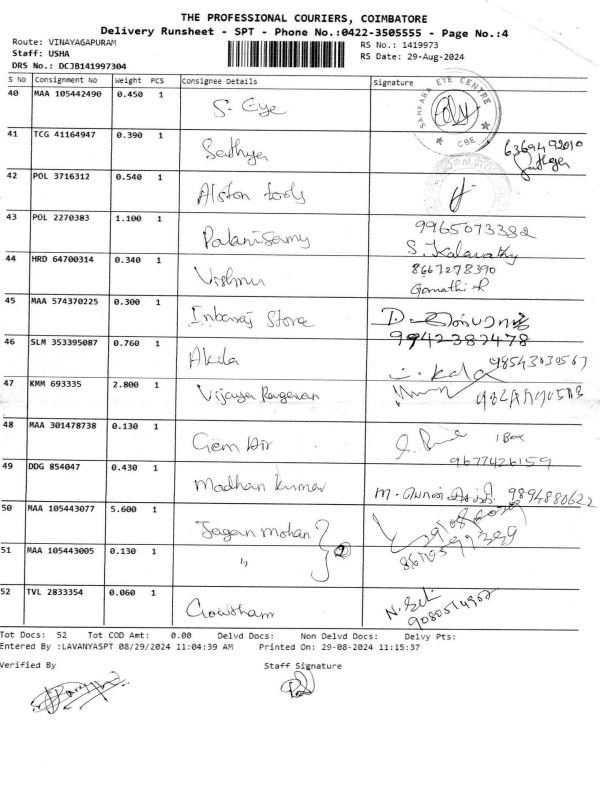 THE PROFESSIONAL COURIERS, COIMBATORE
Delivery Runsheet - SPT - Phone No.:0422-3505555 - Page No.:4
Route: VINAYAGAPURAM
RS No.: 1419973
Staff: USHA
RS Date: 29-Aug-2024
DRS No.: DCJB141997304
S No Consignment No Weight PCS Consignee Details Signature
40 MAA 105442490 0.450 1 S. Eye
SANKARA EYE CENTRE CBE
41 TCG 41164947 0.390 1 Sathya 6369492010
42 POL 3716312 0.540 1 Alston tools
43 POL 2270383 1.100 1 Palanisamy 9965073382
44 HRD 64700314 0.340 1 Vishnu 8667278390
Gomathi
45 MAA 574370225 0.300 1 Inbaraj Store
9942382478
46 SLM 353395087 0.760 1 Akila
47 KMM 693335 2.800 1 Vijaya Ragavan
48 MAA 301478738 0.130 1 Gem Air 1 Box
9677426159
49 DDG 854047 0.430 1 Madhan Kumar 9894880622
50 MAA 105443077 5.600 1 Jagan mohan
51 MAA 105443005 0.130 1 " 2
52 TVL 2833354 0.060 1 Gowtham
Tot Docs: 52 Tot COD Amt: 0.00 Delvd Docs: Non Delvd Docs: Delvy Pts:
Entered By :LAVANYASPT 08/29/2024 11:04:39 AM Printed On: 29-08-2024 11:15:37
Verified By Staff Signature